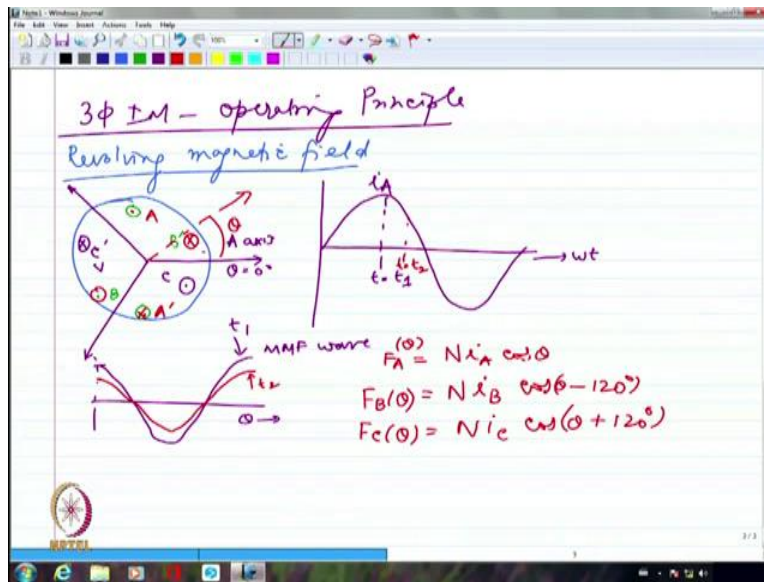 Note1 - Windows Journal
File Edit View Insert Actions Tools Help
100%
B I
3φ IM - operating Principle
Revolving magnetic field
A
B'
θ
A axis
θ = 0°
C'
C
B
A'
iA
t = t1
t = t2
→ ωt
t1
MMF wave
t2
θ →
FA(θ) = N iA cos θ
FB(θ) = N iB cos(θ - 120°)
FC(θ) = N iC cos(θ + 120°)
NPTEL
3/3